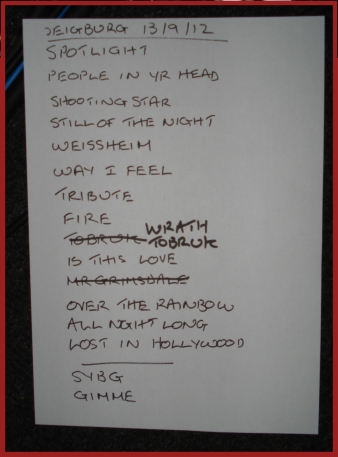 SEIGBURG 13/9/12
SPOTLIGHT
PEOPLE IN YR HEAD
SHOOTING STAR
STILL OF THE NIGHT
WEISSHEIM
WAY I FEEL
TRIBUTE
FIRE
TOBRUK WRATH
TOBRUK
IS THIS LOVE
MR GRIMSDALE
OVER THE RAINBOW
ALL NIGHT LONG
LOST IN HOLLYWOOD
SYBG
GIMME